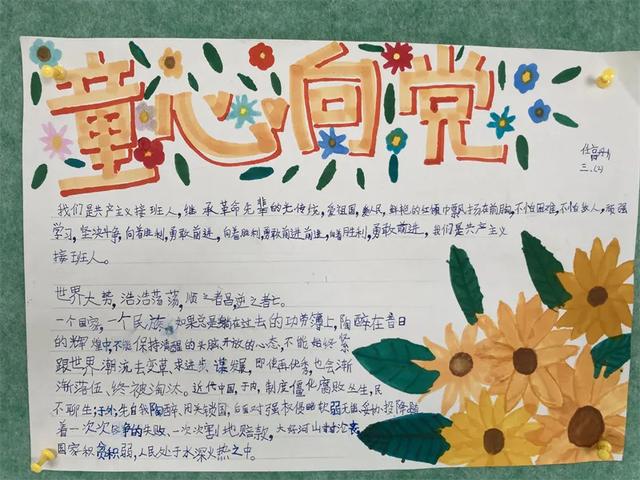 童心向党
三.(2)
我们是共产主义接班人,继承革命先辈的光传统,爱祖国,爱人民,鲜艳的红领巾飘扬在前胸,不怕困难,不怕敌人,顽强
学习,坚决斗争,向着胜利,勇敢前进,向着胜利,勇敢前进前进,向着胜利,勇敢前进,我们是共产主义
接班人。
世界大势,浩浩荡荡,顺之者昌,逆之者亡。
一个国家,一个民族,如果总是躺在过去的功劳簿上,陶醉在昔日
的辉煌中,不能保持清醒的头脑,开放的心态,不能始终紧
跟世界潮流去变革,求进步,谋发展,即使再优秀,也会渐
渐落伍、终被淘汰。近代中国,于内,制度僵化腐败丛生,民
不聊生;于外,先自我陶醉、闭关锁国,后面对强权侵略软弱无能,妥协投降
着一次次的失败、一次次割地赔款,大好河山沦丧,
国家积贫积弱,人民处于水深火热之中。